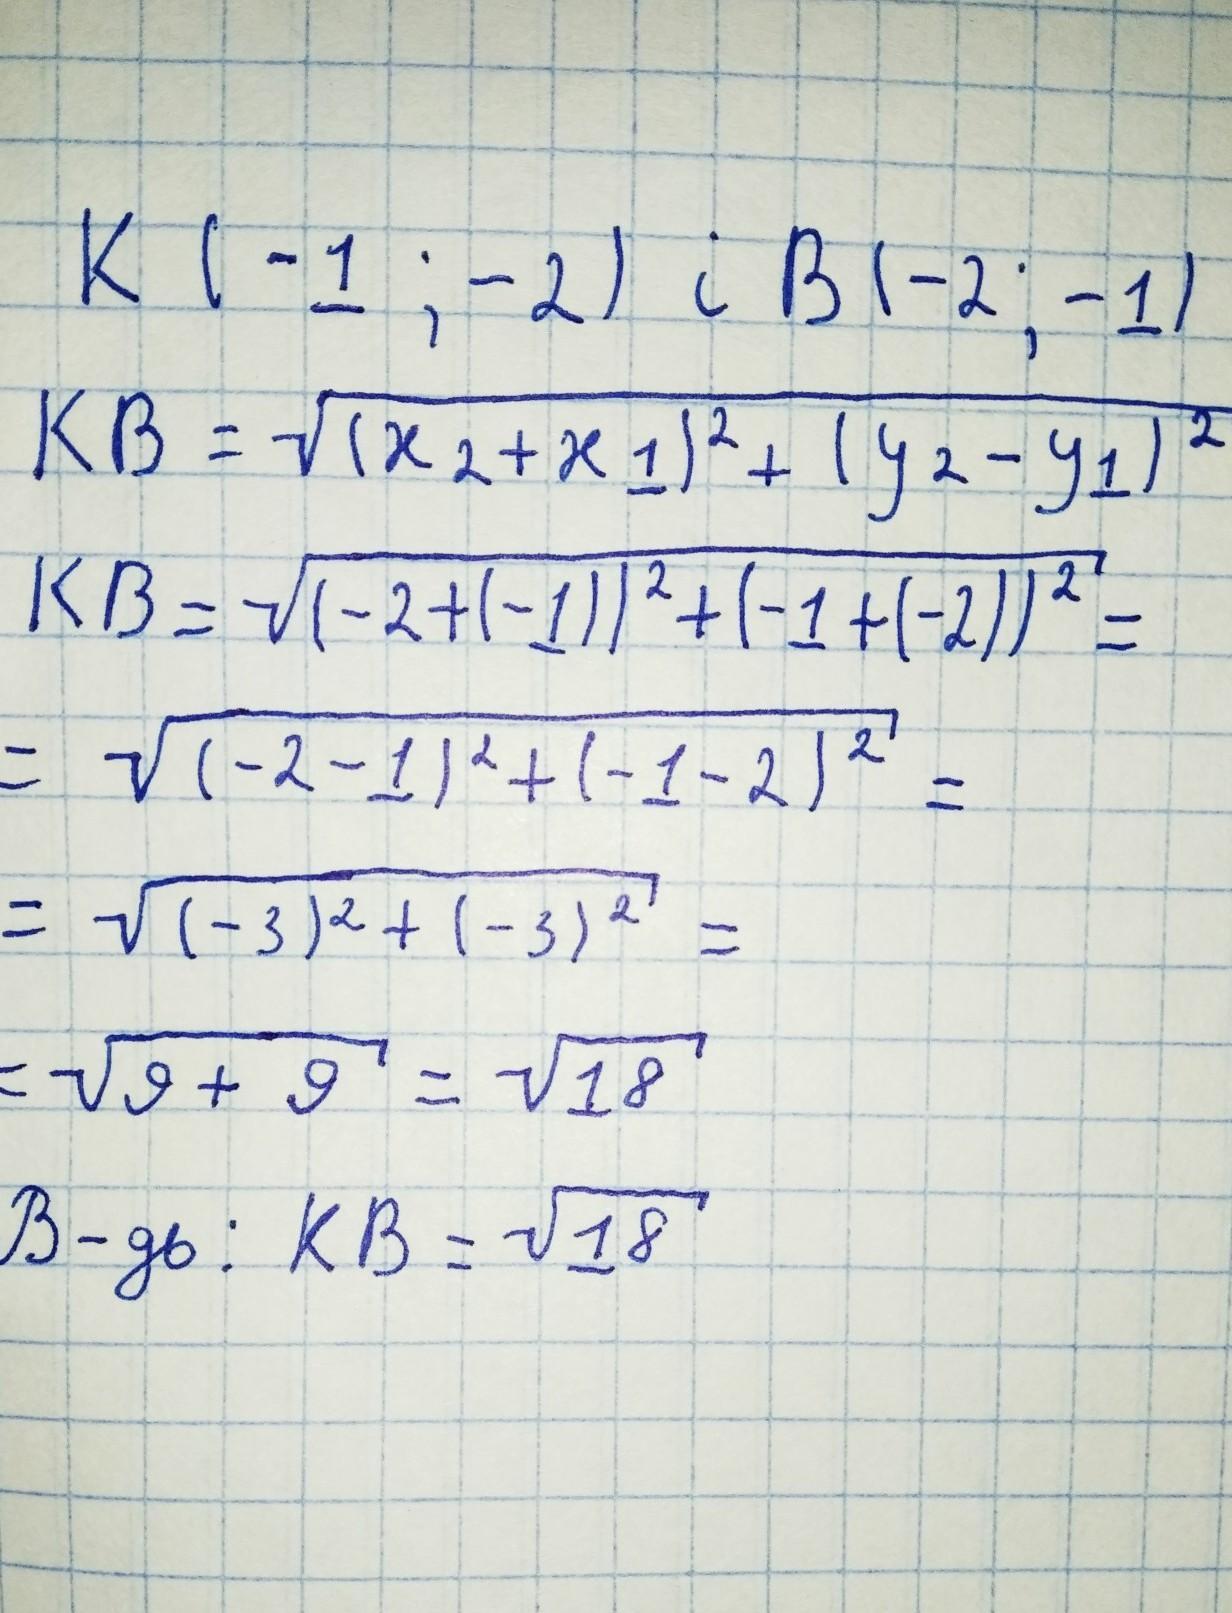 K (-1 ; -2) і B (-2 ; -1)
KB = √(x₂+x₁)² + (y₂-y₁)²
KB = √(-2+(-1))² + (-1+(-2))² =
= √(-2-1)² + (-1-2)² =
= √(-3)² + (-3)² =
= √9 + 9 = √18
В-дь: KB = √18